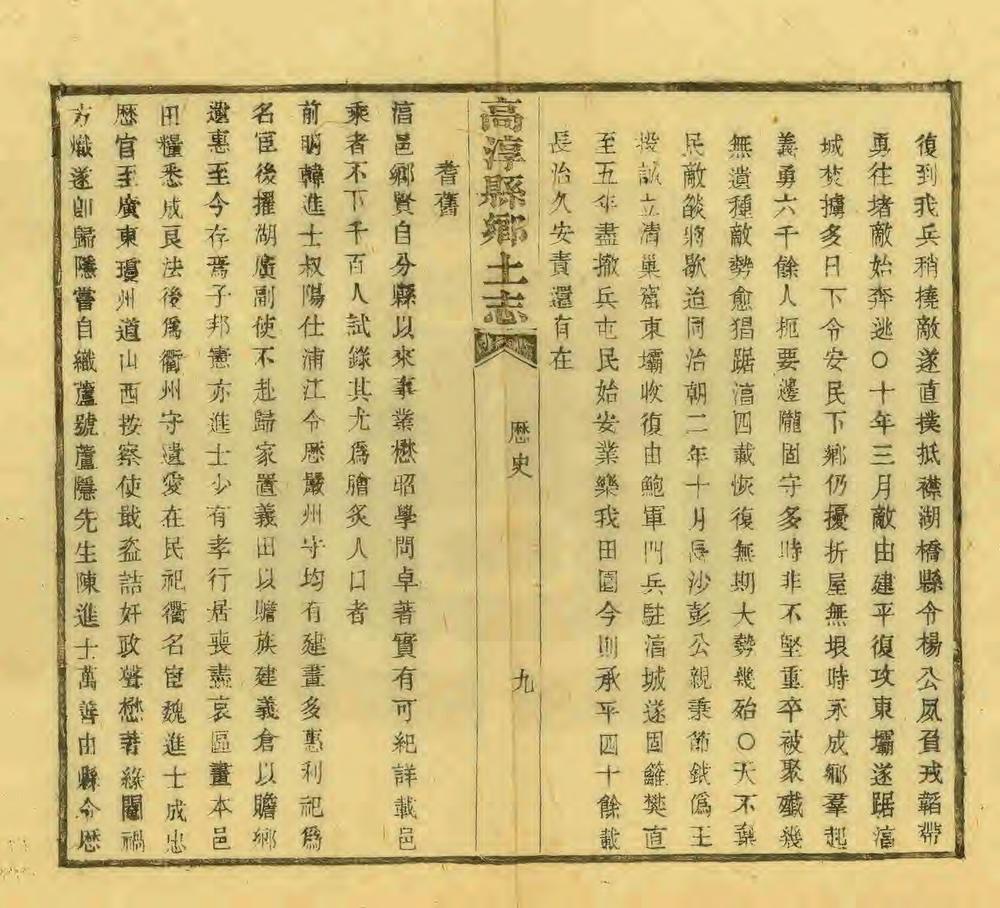 復到我兵稍撓敵遂直撲抵襟湖橋縣令楊公夙負戎韜帶
勇往堵敵始奔逃〇十年三月敵由建平復攻東壩遂踞淳
城焚擄多日下令安民下鄉仍擾折屋無垠時永成鄉羣起
義勇六千餘人扼要邊隴固守多時非不堅重卒被聚殲幾
無遺種敵勢愈猖踞淳四載恢復無期大勢幾殆〇天不棄
民敵燄將歇迨同治朝二年十月長沙彭公親秉節鉞僞王
投誠立清巢窟東壩收復由鮑軍門兵駐淳城遂固籬樊直
至五年盡撤兵屯民始安業樂我田園今則承平四十餘載
長治久安責還有在
高淳縣鄉土志
歷史
九
耆舊
淳邑鄉賢自分縣以來事業懋昭學問卓著實有可紀詳載邑
乘者不下千百人試錄其尤爲膾炙人口者
前明韓進士叔陽仕浦江令歷嚴州守均有建畫多惠利祀爲
名宦後擢湖廣副使不赴歸家置義田以贍族建義倉以贍鄉
遺惠至今存焉子邦憲亦進士少有孝行居喪盡哀區畫本邑
田糧悉成良法後爲衢州守遺愛在民祀衢名宦魏進士成忠
歷官至廣東瓊州道山西按察使戢盜詰奸政聲懋著緣閹禍
方熾遂卽歸隱嘗自織蘆號蘆隱先生陳進士萬善由縣令歷